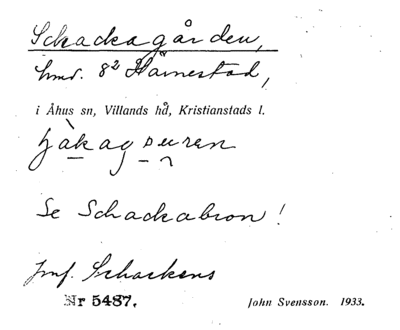 Schackagården,
hmd. 8² Härnestad,
i Åhus sn, Villands hd, Kristianstads l.
Se Schackabron!
Jmf. Schackens
Nr 5487.
John Svensson. 1933.